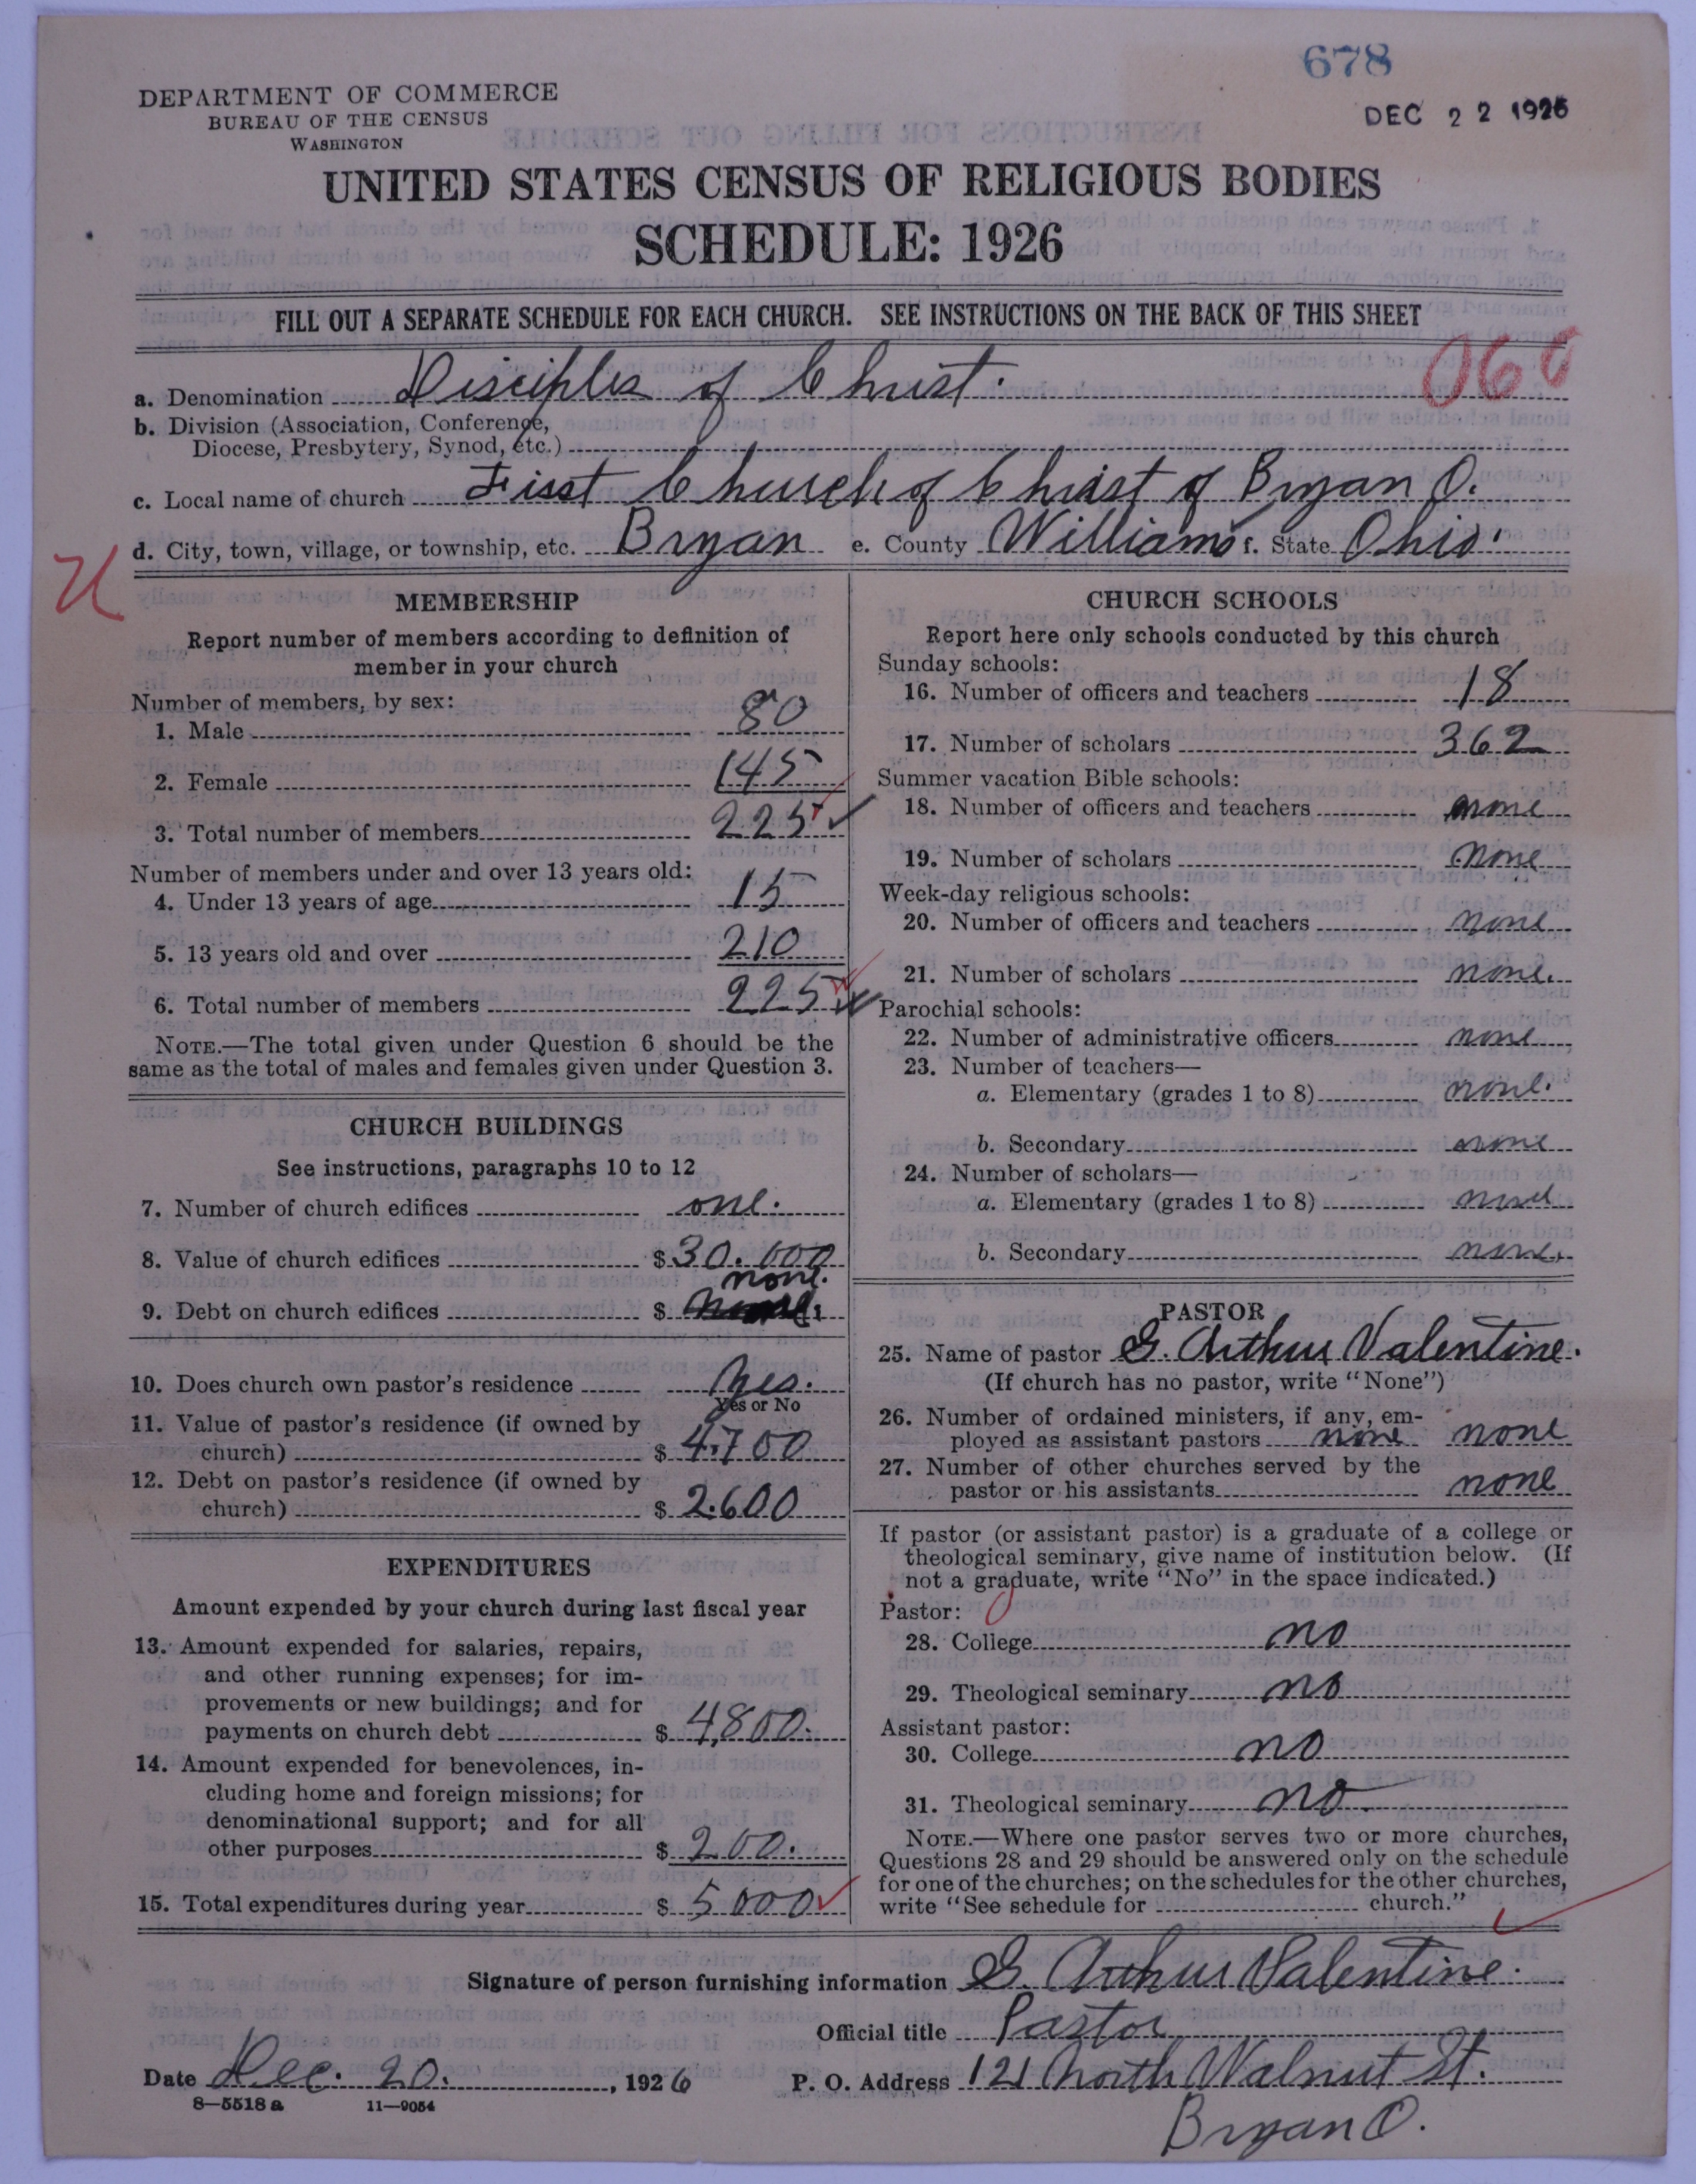 678
DEC 22 1926
DEPARTMENT OF COMMERCE
BUREAU OF THE CENSUS
WASHINGTON
UNITED STATES CENSUS OF RELIGIOUS BODIES
SCHEDULE: 1926
FILL OUT A SEPARATE SCHEDULE FOR EACH CHURCH. SEE INSTRUCTIONS ON THE BACK OF THIS SHEET
060
a. Denomination Disciples of Christ.
b. Division (Association, Conference,
Diocese, Presbytery, Synod, etc.)
c. Local name of church First Church of Christ of Bryan O.
d. City, town, village, or township, etc. Bryan e. County Williams f. State Ohio
MEMBERSHIP
Report number of members according to definition of
member in your church
Number of members, by sex:
1. Male 80
2. Female 145
3. Total number of members 225
Number of members under and over 13 years old:
4. Under 13 years of age 15
5. 13 years old and over 210
6. Total number of members 225
NOTE.—The total given under Question 6 should be the
same as the total of males and females given under Question 3.
CHURCH BUILDINGS
See instructions, paragraphs 10 to 12
7. Number of church edifices one.
8. Value of church edifices $ 30.000
none.
9. Debt on church edifices $
10. Does church own pastor's residence Yes.
Yes or No
11. Value of pastor's residence (if owned by
church) $ 4.700
12. Debt on pastor's residence (if owned by
church) $ 2.600
EXPENDITURES
Amount expended by your church during last fiscal year
13. Amount expended for salaries, repairs,
and other running expenses; for im-
provements or new buildings; and for
payments on church debt $ 4,800.
14. Amount expended for benevolences, in-
cluding home and foreign missions; for
denominational support; and for all
other purposes $ 200.
15. Total expenditures during year $ 5000
CHURCH SCHOOLS
Report here only schools conducted by this church
Sunday schools:
16. Number of officers and teachers 18
17. Number of scholars 362
Summer vacation Bible schools:
18. Number of officers and teachers none
19. Number of scholars none
Week-day religious schools:
20. Number of officers and teachers none
21. Number of scholars none.
Parochial schools:
22. Number of administrative officers none
23. Number of teachers—
a. Elementary (grades 1 to 8) none.
b. Secondary none
24. Number of scholars—
a. Elementary (grades 1 to 8) none
b. Secondary none.
PASTOR
25. Name of pastor G. Arthur Valentine.
(If church has no pastor, write "None")
26. Number of ordained ministers, if any, em-
ployed as assistant pastors none none
27. Number of other churches served by the
pastor or his assistants none
If pastor (or assistant pastor) is a graduate of a college or
theological seminary, give name of institution below. (If
not a graduate, write "No" in the space indicated.)
Pastor:
28. College no
29. Theological seminary no
Assistant pastor:
30. College no
31. Theological seminary no
NOTE.—Where one pastor serves two or more churches,
Questions 28 and 29 should be answered only on the schedule
for one of the churches; on the schedules for the other churches,
write "See schedule for church."
Signature of person furnishing information G. Arthur Valentine.
Official title Pastor
Date Dec. 20. , 1926 P. O. Address 121 North Walnut St.
8—5518 a 11—9054
Bryan O.